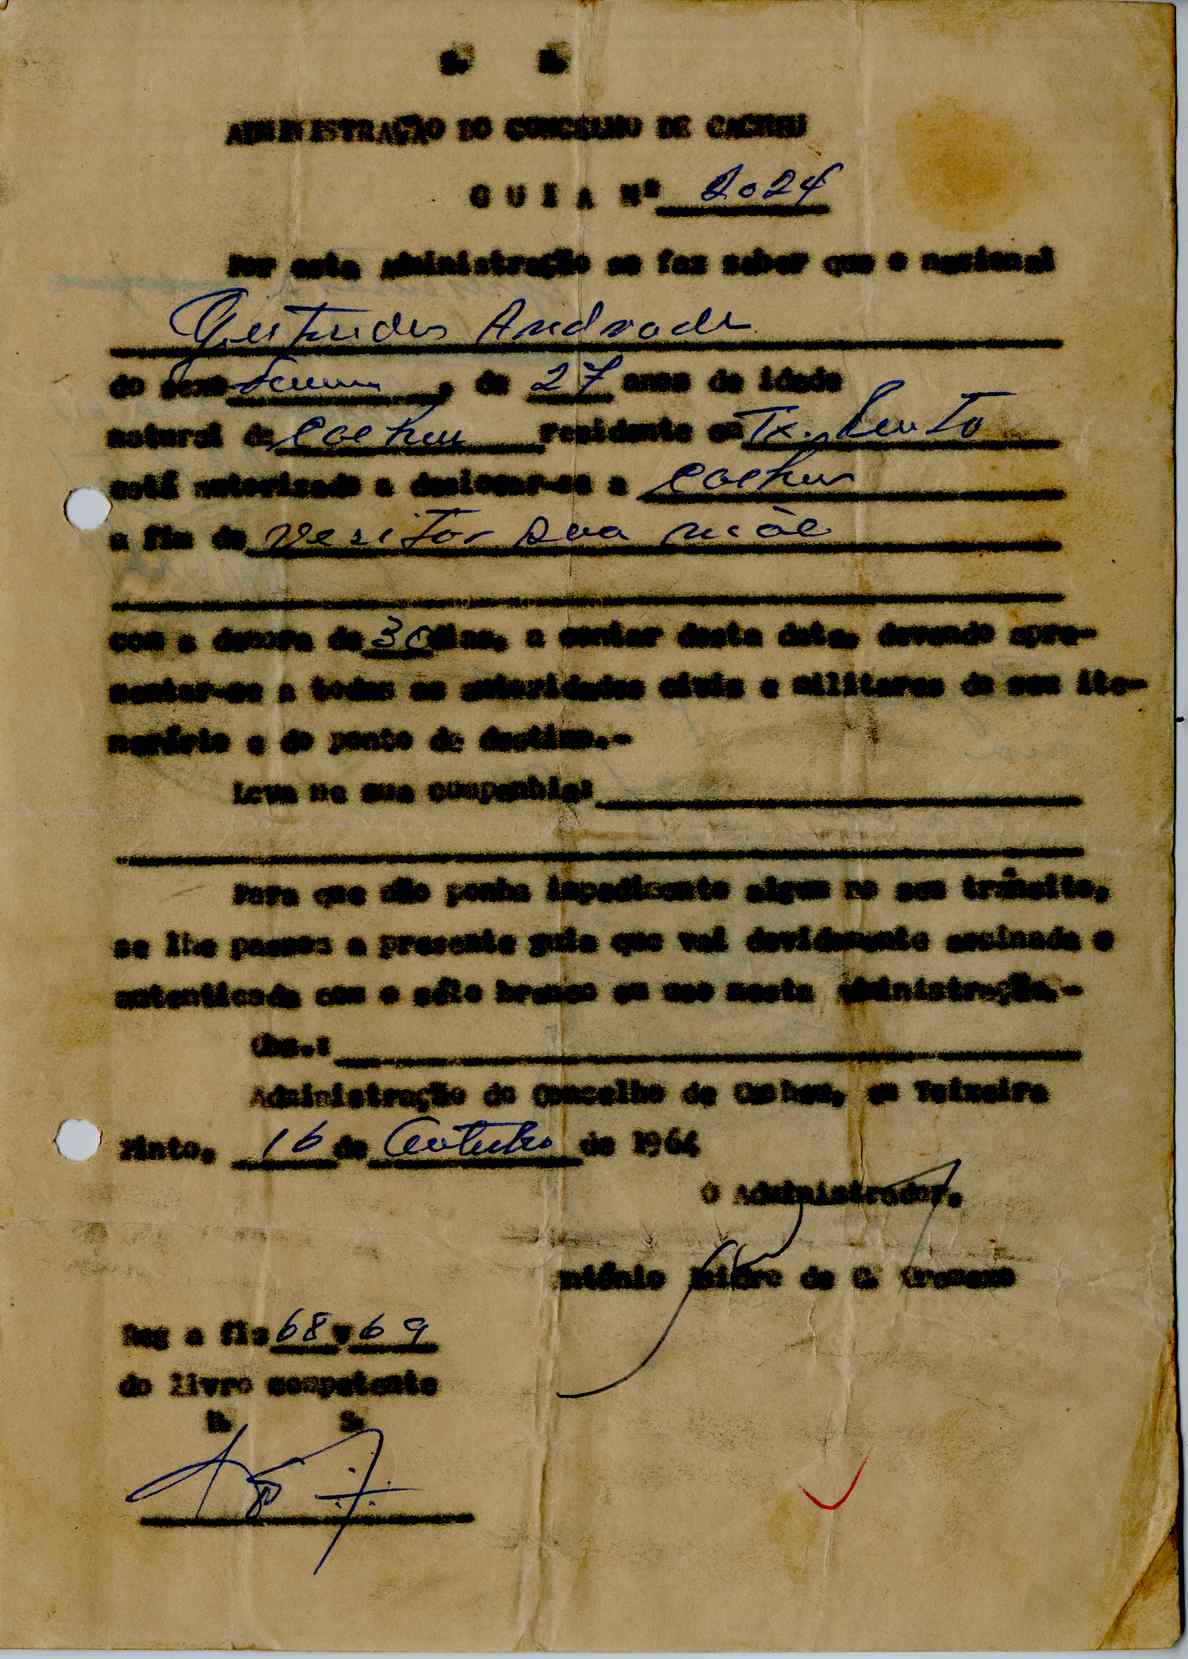 S. R.
ADMINISTRAÇÃO DO CONCELHO DE CACHEU
G U I A Nº 2024
Por esta Administração se faz saber que o nacional
Gertrudes Andrade
do sexo femin, de 27 anos de idade
natural de Cacheu residente em Tx. Pinto
está autorizado a deslocar-se a Cacheu
a fim de vesitar sua mãe
com a demora de 30 dias, a contar desta data, devendo apre-
sentar-se a todas as autoridades civis e militares do seu ite-
nerário e do ponto de destino.-
Leva na sua companhia:
Para que não ponha impedimento algum no seu trânsito,
se lhe passou a presente guia que vai devidamente assinada e
autenticada com o sêlo branco em uso nesta Administração.-
Obs.:
Administração do Concelho de Cacheu, em Teixeira
Pinto, 16 de Outubro de 1964
O Administrador,
António de C.
Reg a fls 68 v 69
do livro competente